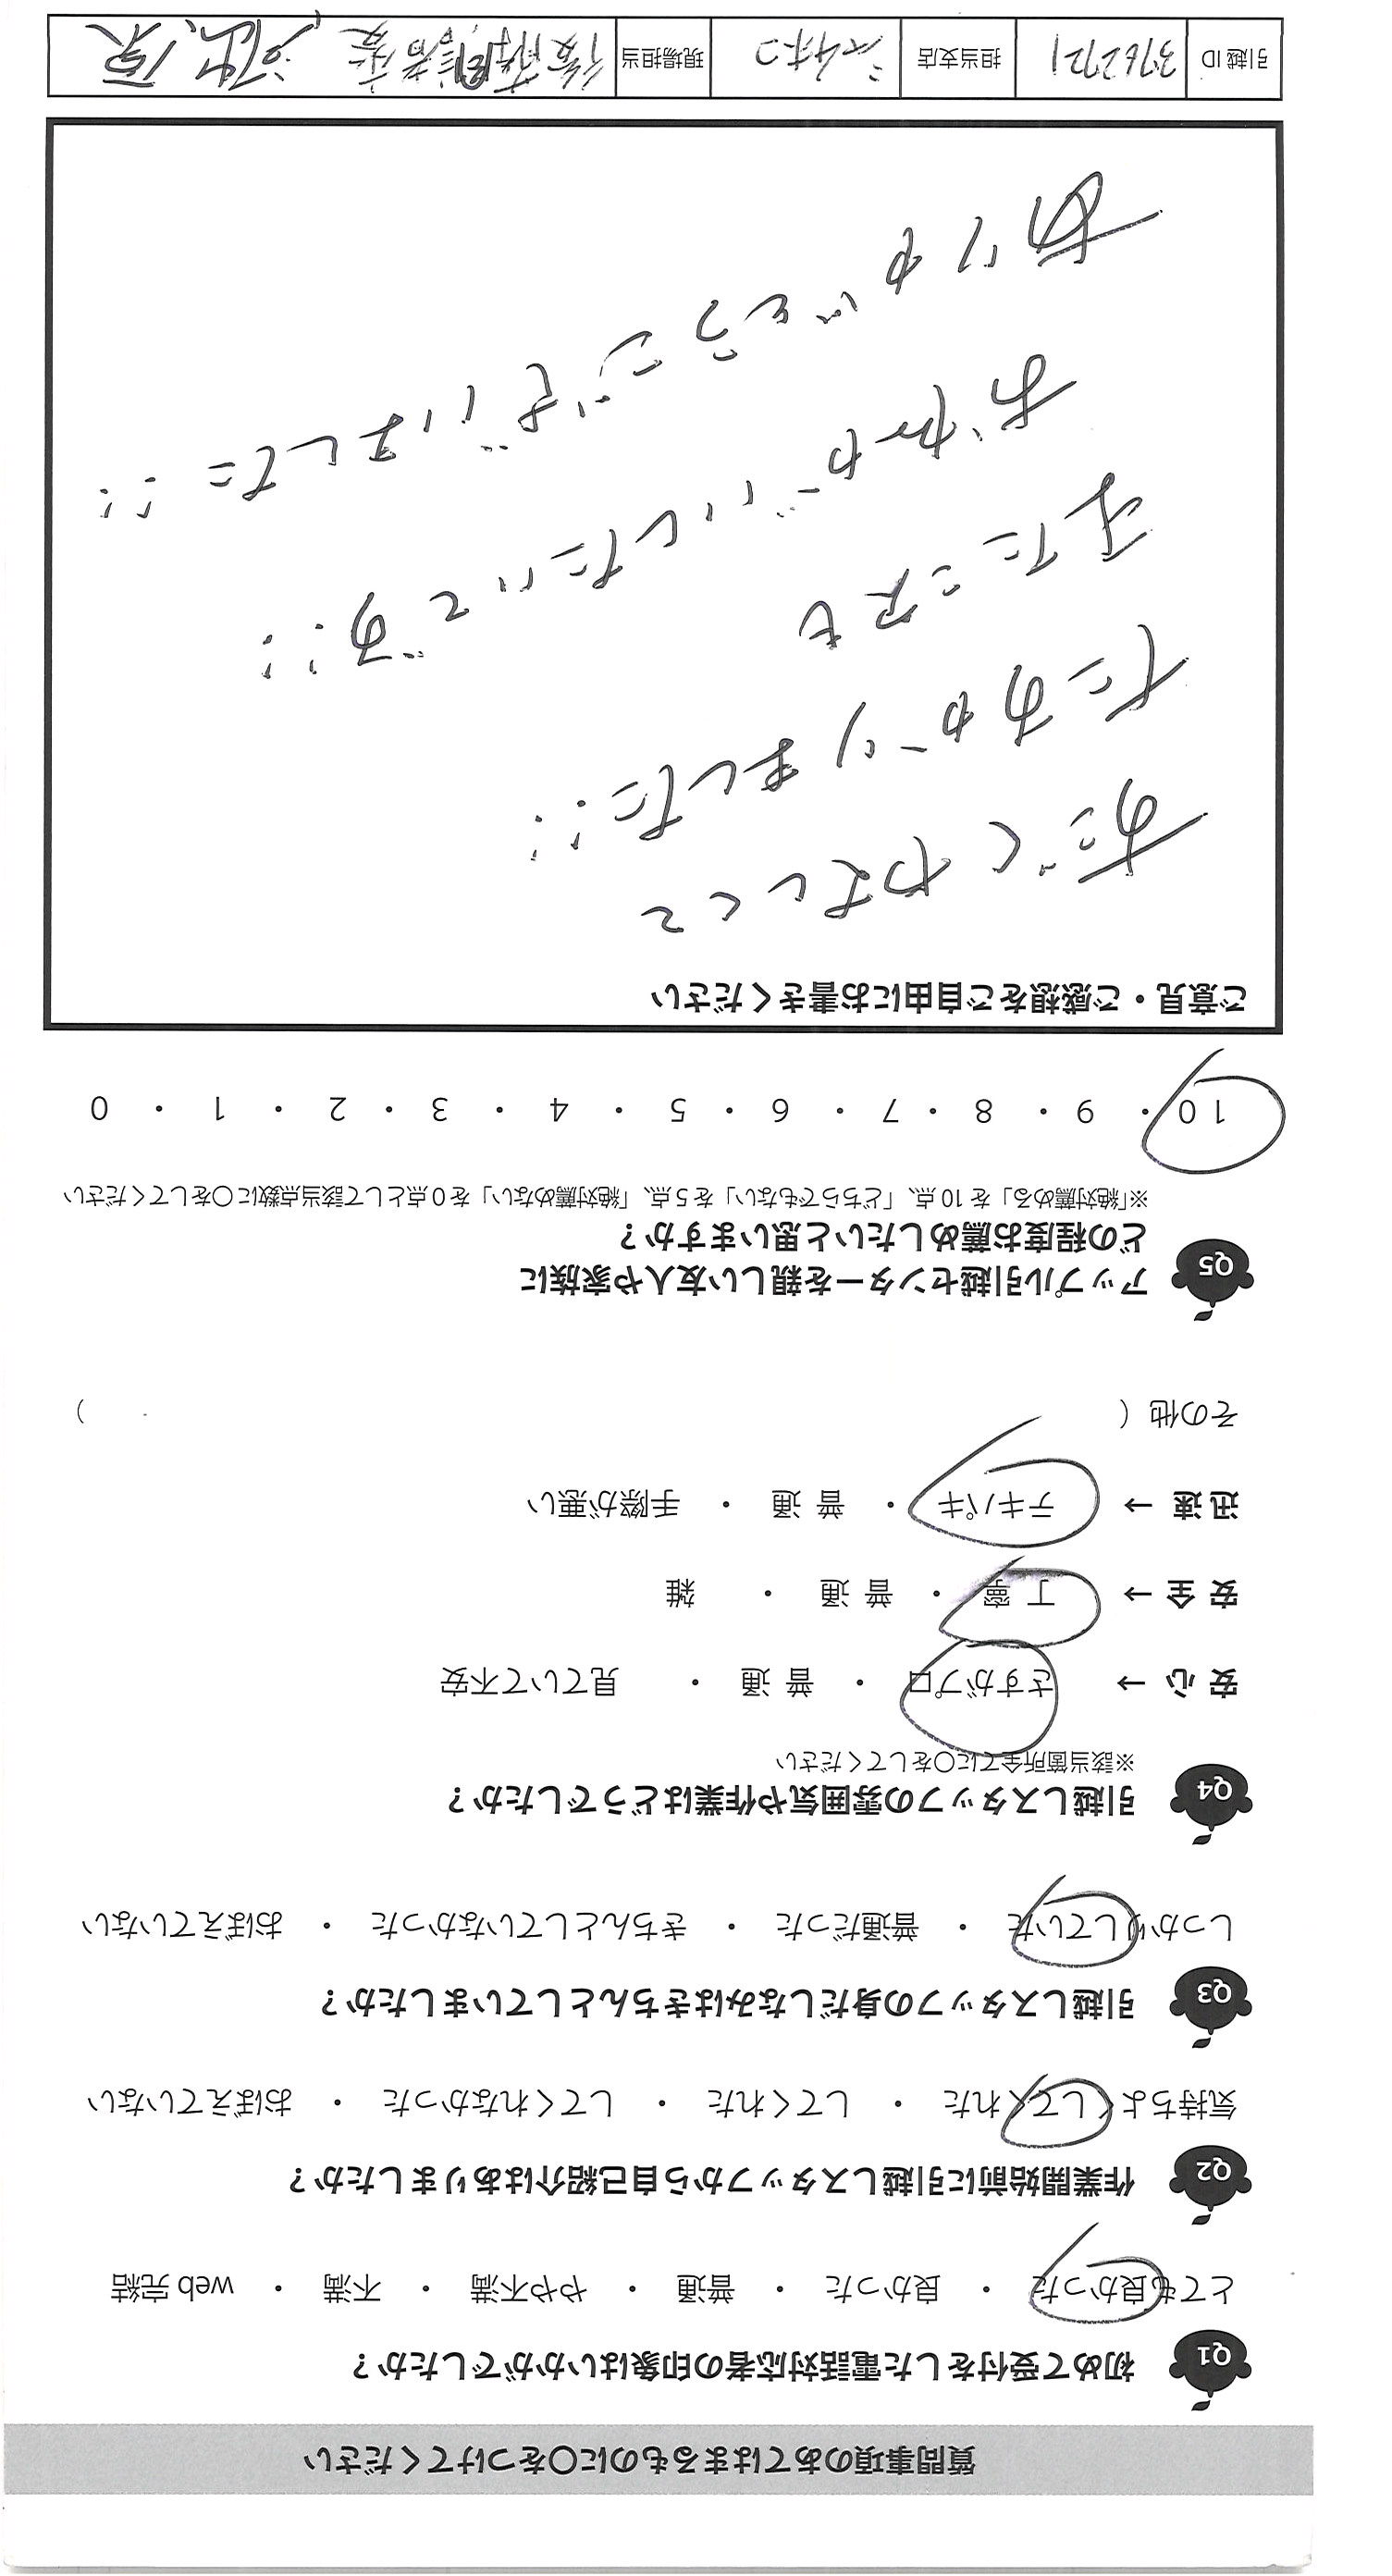 質問事項のあてはまるものに〇をつけてください
Q1 初めて受付をした電話対応者の印象はいかがでしたか？
とても良かった ・ 良かった ・ 普通 ・ やや不満 ・ 不満 ・ web 完結
Q2 作業開始前に引越しスタッフから自己紹介はありましたか？
気持ちよくしてくれた ・ してくれた ・ してくれなかった ・ おぼえていない
Q3 引越しスタッフの身だしなみはきちんとしていましたか？
しっかりしていた ・ 普通だった ・ きちんとしていなかった ・ おぼえていない
Q4 引越しスタッフの雰囲気や作業はどうでしたか？
※該当箇所全てに〇をしてください
安心 → さすがプロ ・ 普通 ・ 見ていて不安
安全 → 丁寧 ・ 普通 ・ 雑
迅速 → テキパキ ・ 普通 ・ 手際が悪い
その他（ ）
Q5 アップル引越センターを親しい友人や家族に
どの程度お薦めしたいと思いますか？
※「絶対薦める」を 10 点、「どちらでもない」を 5 点、「絶対薦めない」を 0 点として該当点数に〇をしてください
10 ・ 9 ・ 8 ・ 7 ・ 6 ・ 5 ・ 4 ・ 3 ・ 2 ・ 1 ・ 0
ご意見・ご感想をご自由にお書きください
おだくやましくて
たすかりました!!
また
おねがいしたいです!!
ありがとうございました!!
引越 ID 3762721 担当支店 現場担当